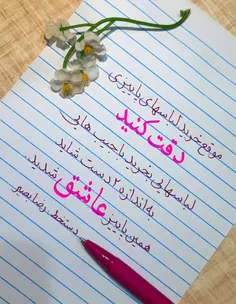 موقع خرید لباسهای پاییزی
دقت کنید
لباسهایی بخرید با جیب هایی
به اندازه ۲ دست. شاید
همین پاییز عاشق شدید.
دستخط. رضا بصیر